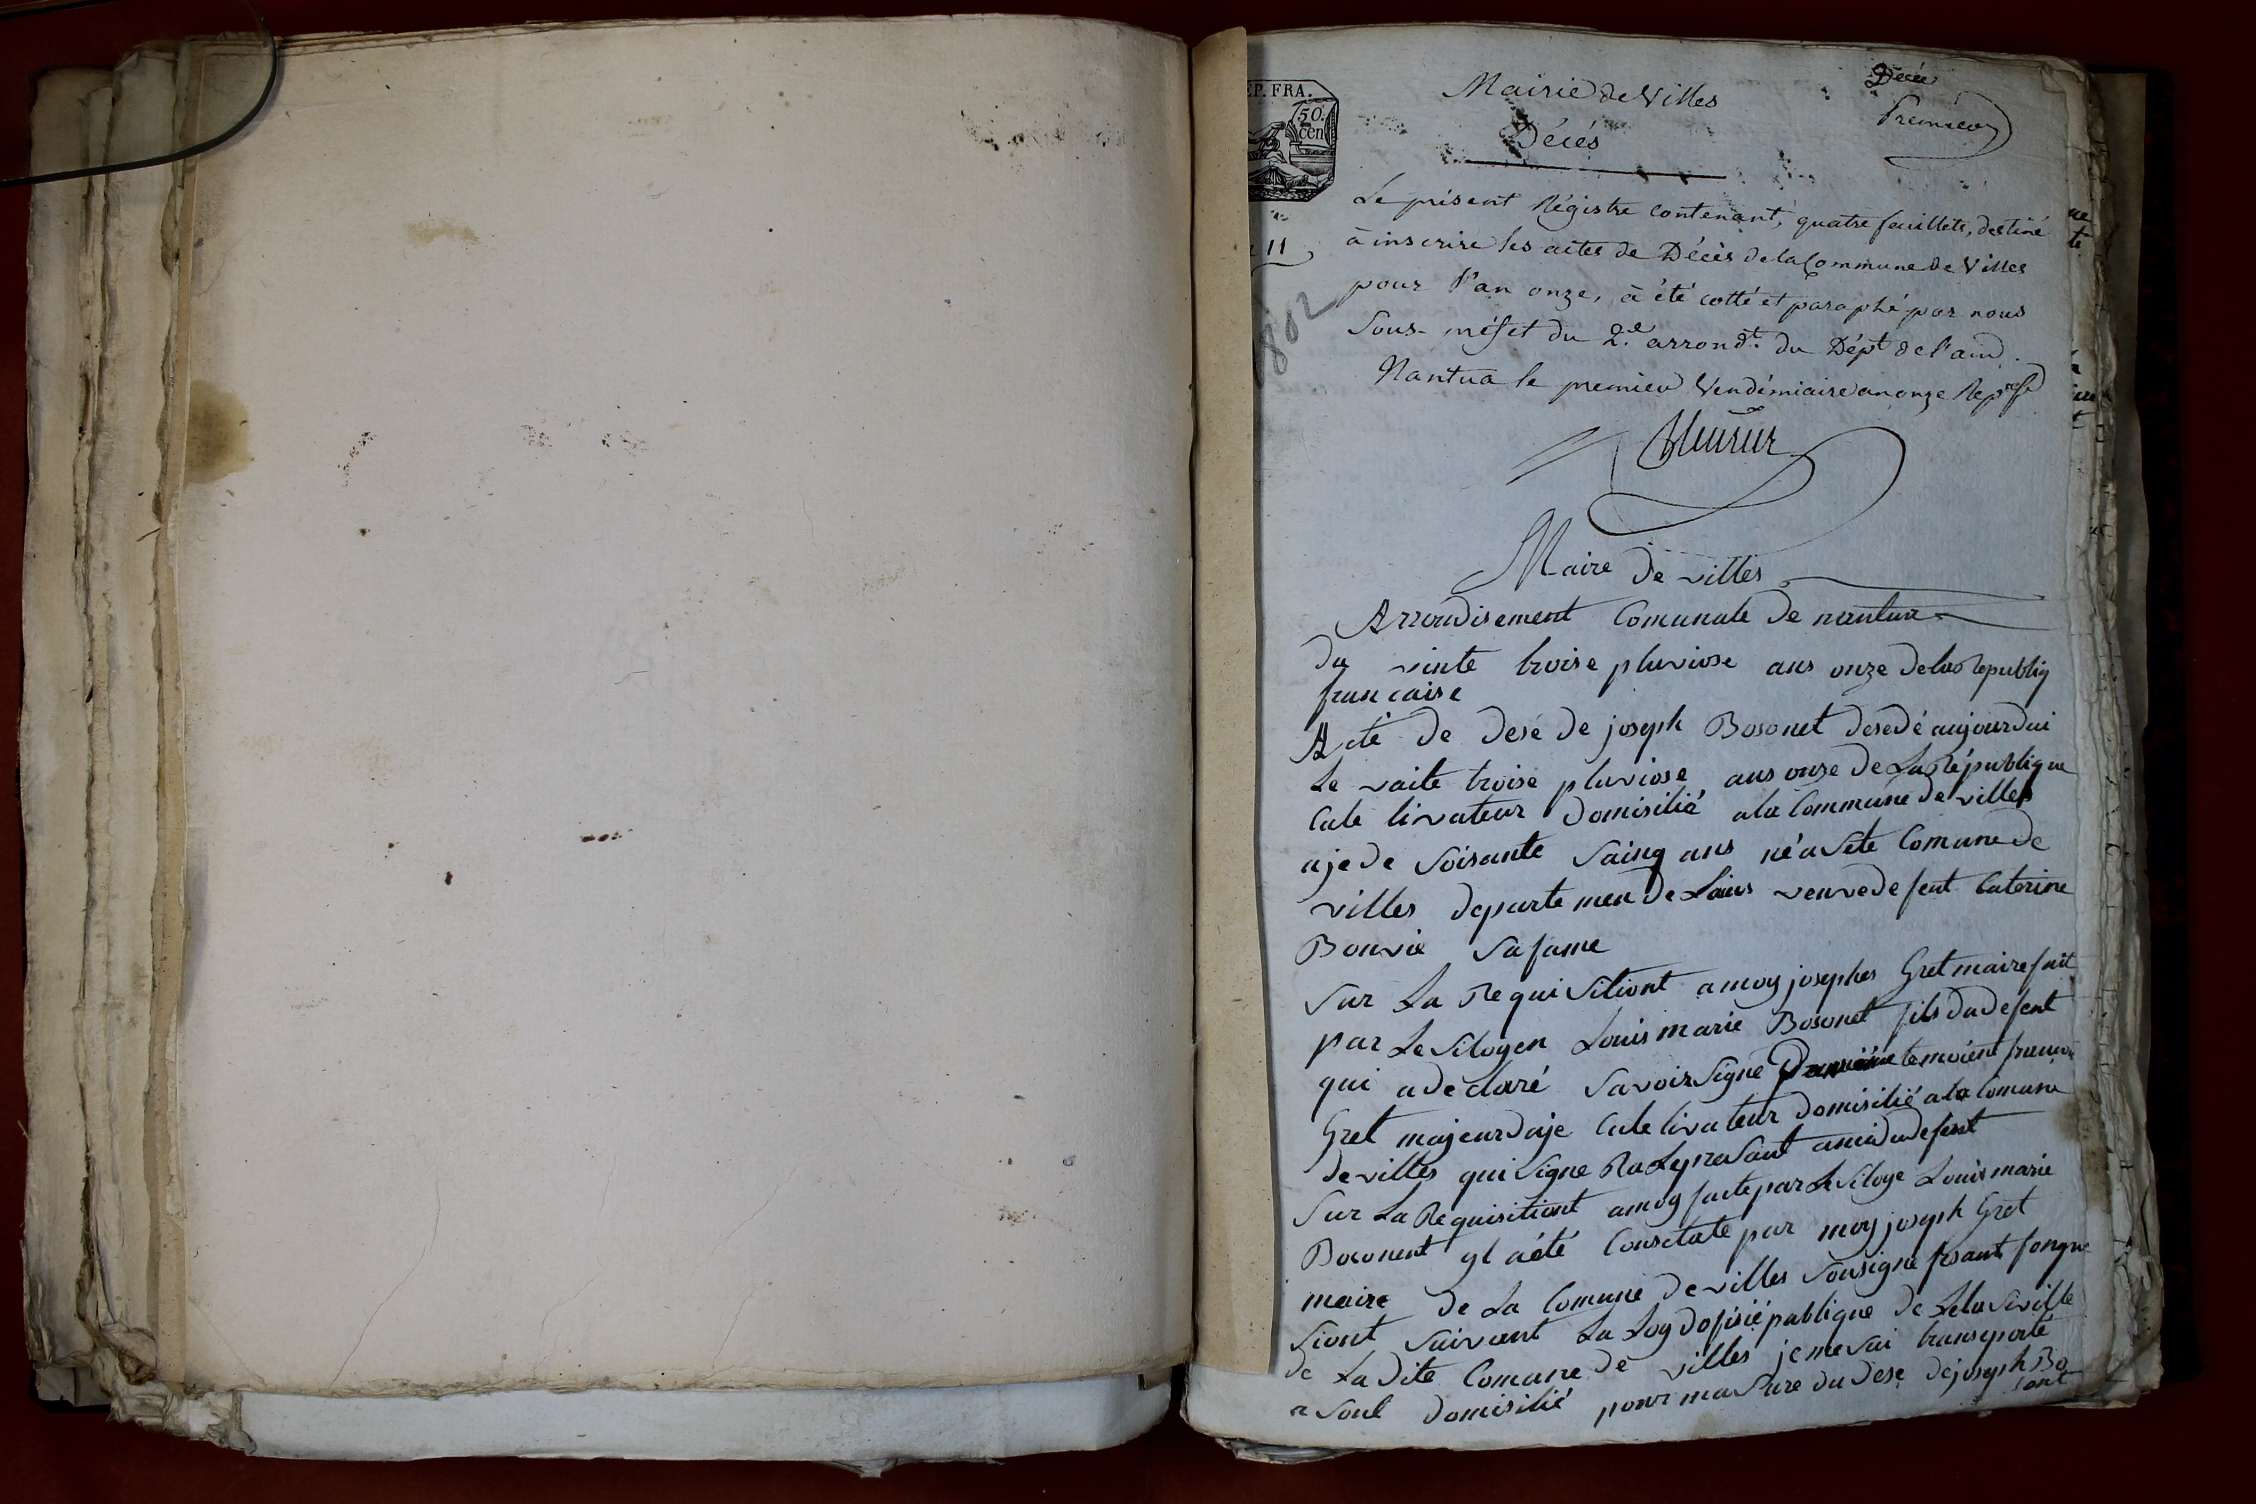 EP. FRA.
50.
cen
Mairie de Villes
Décès
Premier
11
1802
Le présent Régistre contenant, quatre feuillets, destiné
à inscrire les actes de Décès de la Commune de Villes
pour l'an onze, à été cotté et paraphé par nous
Sous-préfet du 2.e arrond.t du Dép.t de l'ain.
Nantua le premier Vendémiaire an onze
Maire de villes
Arrondisement Comunale de nantua
du vinte troise pluviose ans onze de la Republiq
francaise
Acte de desé de joseph Bosonet desedé aujourdui
Le vaite troise pluviose ans onze de La République
Cule tivateur domisilié a la Commune de villes
aje de Soisante Sainq ans né a Sete Comune de
villes departemen de Lains veuve de feut Caterine
Bouvie Safame
Sur La Requisitiont a moy josephes Gret maire fait
par Le Sitoyen Louis marie Bosonet fils du défent
qui a déclaré Savoir Signé temoient
Gret majeur daje Cule tivateur domisilié a la Comune
de villes qui Signe ami du defent
Sur La Requisitiont a moy faite par Le Sitoye Louis marie
Boconent yl a été Consctate par moy joseph Gret
maire de La Comune de villes Sousigne fesant fongue
Siont Saivant La Loy dofisié publique de Letat Siville
de La dite Comune de villes je me Sai transporté
a Sont domisilié pour ma Sure du dese de joseph Bo